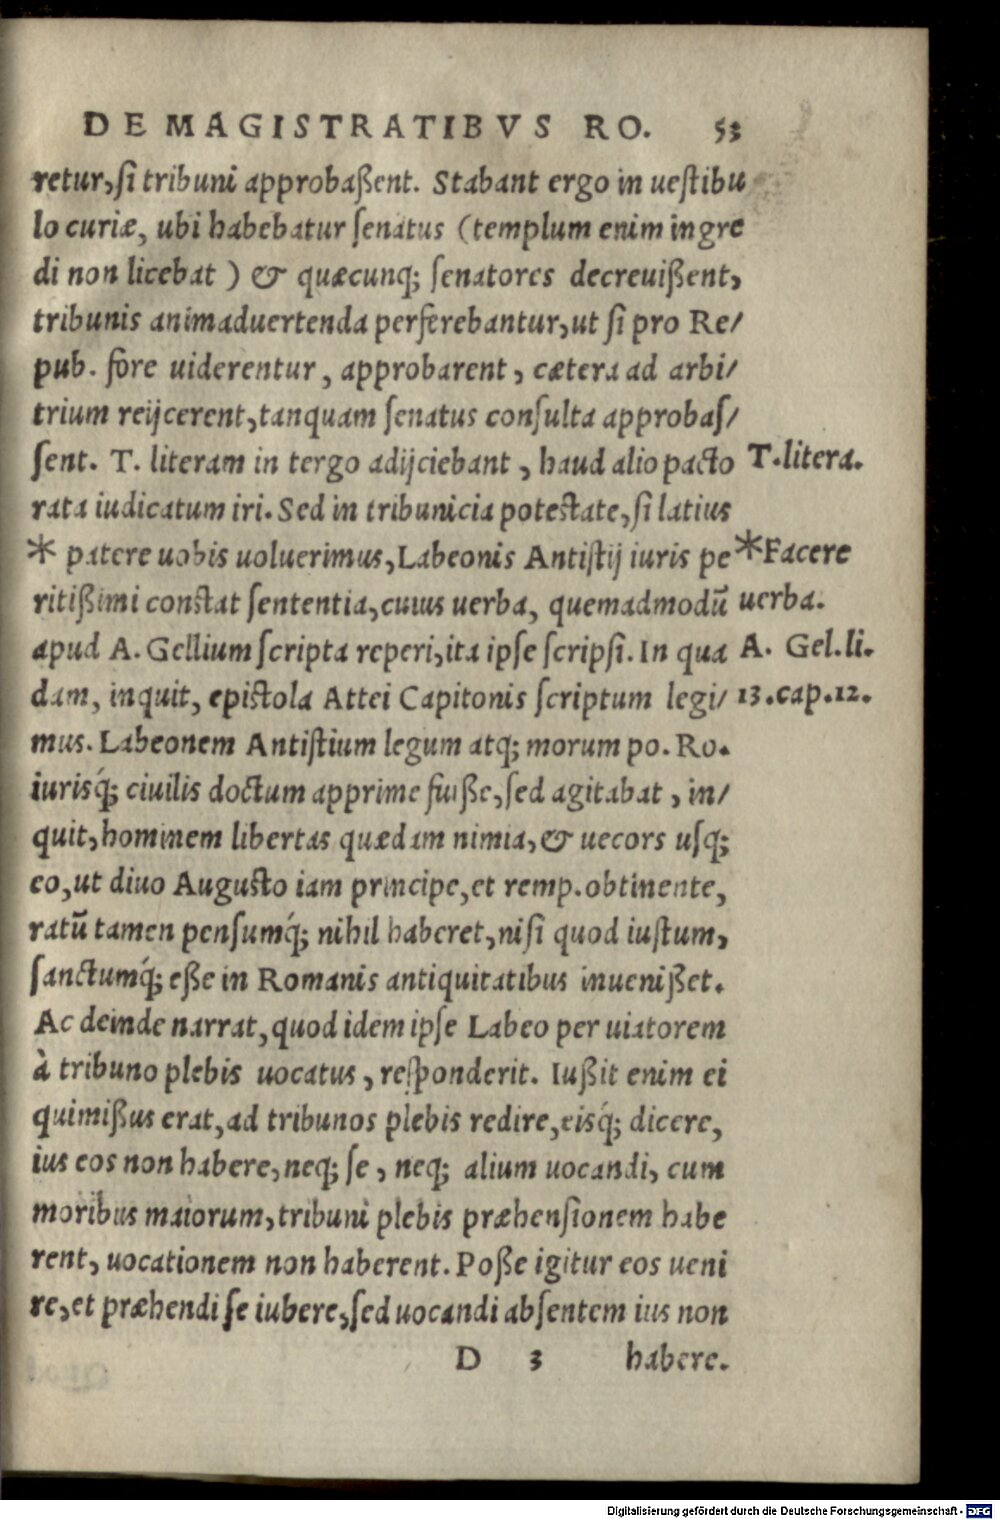 DE MAGISTRATIBVS RO. 53
retur, ſi tribuni approbaßent. Stabant ergo in ueſtibu
lo curiæ, ubi habebatur ſenatus (templum enim ingre
di non licebat) & quæcunq; ſenatores decreuißent,
tribunis animaduertenda perferebantur, ut ſi pro Re/
pub. fore uiderentur, approbarent, cætera ad arbi/
trium reijcerent, tanquam ſenatus conſulta approbaſ/
ſent. T. literam in tergo adijciebant, haud alio pacto
T. litera.
rata iudicatum iri. Sed in tribunicia potestate, ſi latius
* patere uobis uoluerimus, Labeonis Antiſtij iuris pe
*Facere
ritißimi constat ſententia, cuius uerba, quemadmodū
uerba.
apud A. Gellium ſcripta reperi, ita ipſe ſcripſi. In qua
A. Gel. li.
dam, inquit, epistola Attei Capitonis ſcriptum legi/
13. cap. 12.
mus. Labeonem Antiſtium legum atq; morum po. Ro.
iurisq́; ciuilis doctum apprime fuiße, ſed agitabat, in/
quit, hominem libertas quædam nimia, & uecors uſq;
eo, ut diuo Augusto iam principe, et remp. obtinente,
ratū tamen penſumq́; nihil haberet, niſi quod iuſtum,
ſanctumq́; eße in Romanis antiquitatibus inuenißet.
Ac deinde narrat, quod idem ipſe Labeo per uiatorem
à tribuno plebis uocatus, reſponderit. Iußit enim ei
quimißus erat, ad tribunos plebis redire, eisq́; dicere,
ius eos non habere, neq; ſe, neq; alium uocandi, cum
moribus maiorum, tribuni plebis præhenſionem habe
rent, uocationem non haberent. Poße igitur eos ueni
re, et præhendi ſe iubere, ſed uocandi abſentem ius non
D 3 habere.
Digitalisierung gefördert durch die Deutsche Forschungsgemeinschaft - DFG